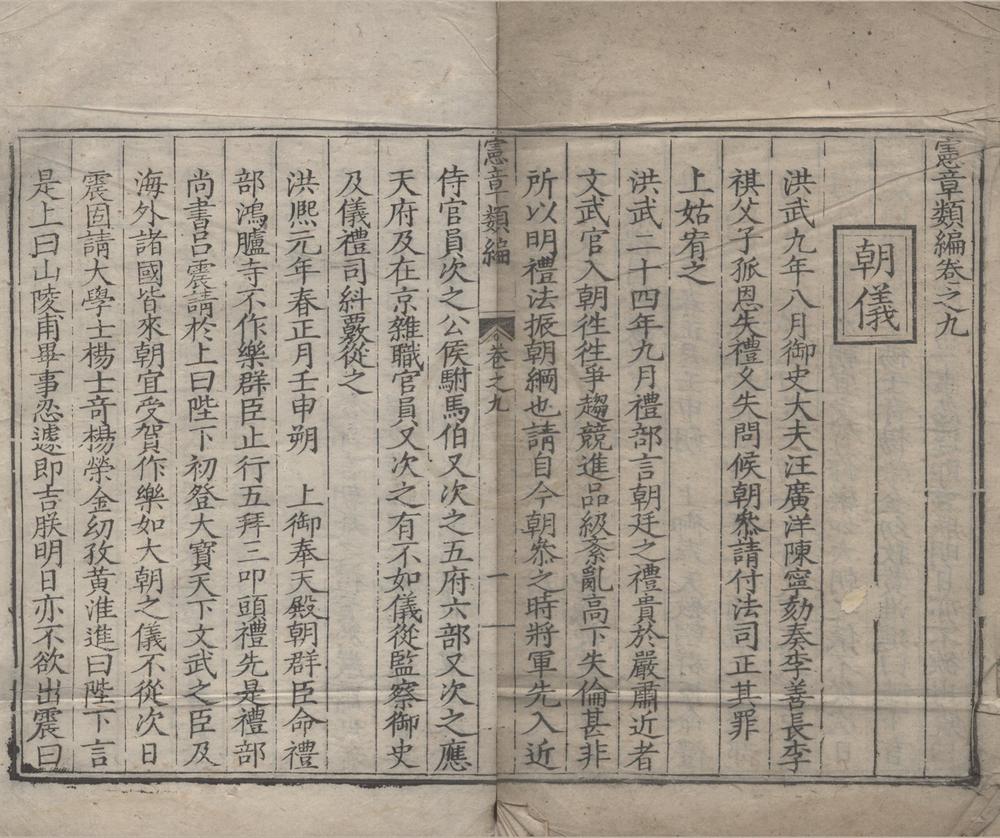 憲章類編卷之九
朝儀
洪武九年八月御史大夫汪廣洋陳寧劾奏李善長李
祺父子孤恩失禮乆失問候朝叅請付法司正其罪
上姑宥之
洪武二十四年九月禮部言朝廷之禮貴於嚴肅近者
文武官入朝徃徃爭趨競進品級紊亂高下失倫甚非
所以明禮法振朝綱也請自今朝叅之時將軍先入近
憲章類編
卷之九
一
侍官員次之公侯駙馬伯又次之五府六部又次之應
天府及在京雜職官員又次之有不如儀從監察御史
及儀禮司糾覈從之
洪熈元年春正月壬申朔　上御奉天殿朝群臣命禮
部鴻臚寺不作樂群臣止行五拜三叩頭禮先是禮部
尚書呂震請於上曰陛下初登大寶天下文武之臣及
海外諸國皆來朝宜受賀作樂如大朝之儀不從次日
震固請大學士楊士奇楊榮金幼孜黃淮進曰陛下言
是上曰山陵甫畢事忍遽即吉朕明日亦不欲出震曰